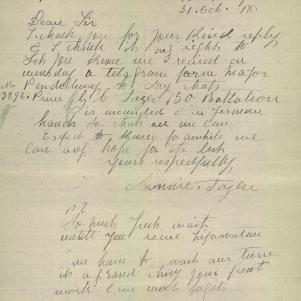 31. Oct. /18.
Dear Sir
I thank you for your Kind reply
& I think it only right to
let you know we received on
monday a telegram from major
Pendlebury to Say that
No 3296. Private C Sayer /50 Battalion
is wounded & in German
hands So that all we can
Expect to know for awhile we
can only hope for the best
Yours respectfully
Minnie. Sayer
P.S
So much
untill you some information
we have to wait our turn
its a grand thing your great
work & we must